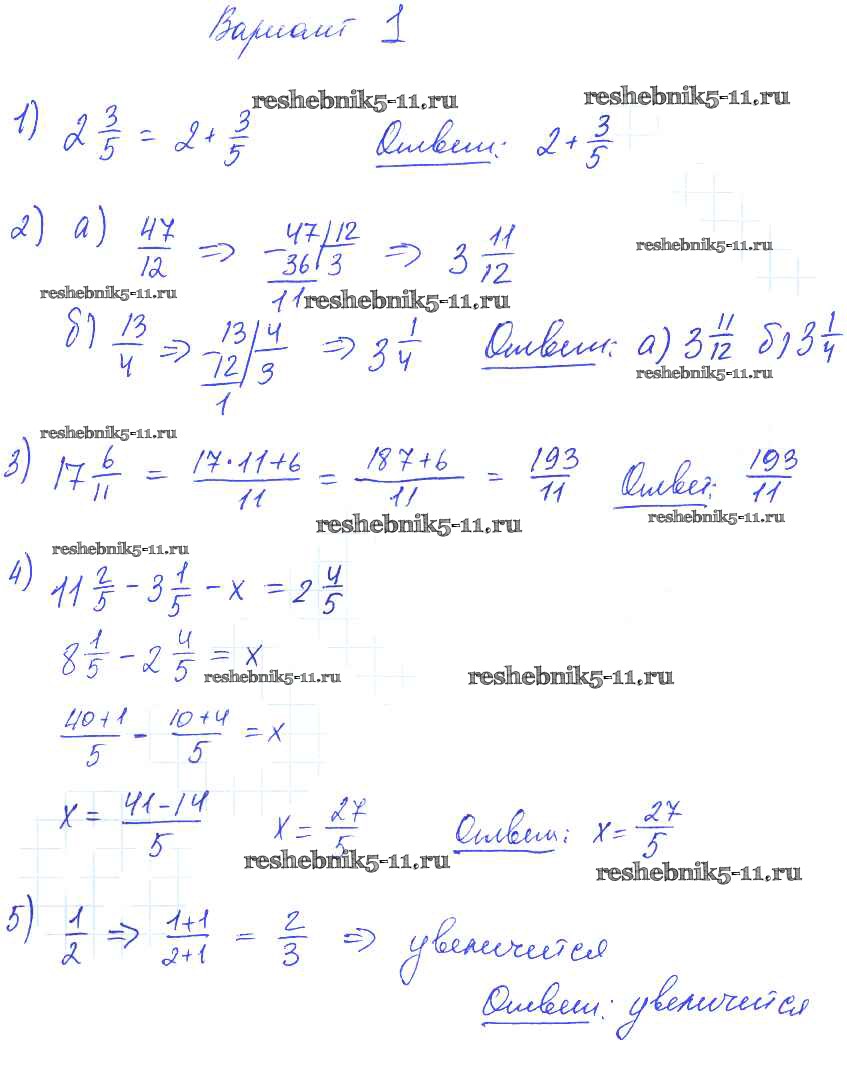 Вариант 1
reshebnik5-11.ru reshebnik5-11.ru
1) 2 3/5 = 2 + 3/5 Ответ: 2 + 3/5
reshebnik5-11.ru
2) а) 47/12 ⇒ 47 | 12 ⇒ 3 11/12
- 36 | 3
11
reshebnik5-11.ru reshebnik5-11.ru
б) 13/4 ⇒ 13 | 4 ⇒ 3 1/4 Ответ: а) 3 11/12 б) 3 1/4
- 12 | 3
1
reshebnik5-11.ru
reshebnik5-11.ru
3) 17 6/11 = (17·11+6)/11 = (187+6)/11 = 193/11 Ответ: 193/11
reshebnik5-11.ru reshebnik5-11.ru
reshebnik5-11.ru
4) 11 2/5 - 3 1/5 - x = 2 4/5
8 1/5 - 2 4/5 = x
reshebnik5-11.ru reshebnik5-11.ru
(40+1)/5 - (10+4)/5 = x
x = (41-14)/5 x = 27/5 Ответ: x = 27/5
reshebnik5-11.ru reshebnik5-11.ru
5) 1/2 ⇒ (1+1)/(2+1) = 2/3 ⇒ увеличится
Ответ: увеличится